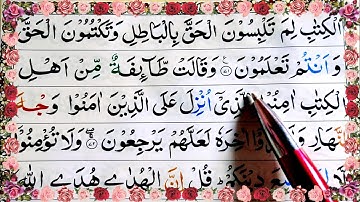 الْكِتٰبِ لِمَ تَلْبِسُوْنَ الْحَقَّ بِالْبَاطِلِ وَتَكْتُمُوْنَ الْحَقَّ
وَاَنْتُمْ تَعْلَمُوْنَ ۷۱ وَقَالَتْ طَّآئِفَةٌ مِّنْ اَهْلِ
الْكِتٰبِ اٰمِنُوْا اُنْزِلَ عَلَى الَّذِيْنَ اٰمَنُوْا وَجْهَ
النَّهَارِ اٰخِرَهٗ لَعَلَّهُمْ يَرْجِعُوْنَ ۷۲ وَلَا تُؤْمِنُوْۤا
دِيْنَكُمْ قُلْ اِنَّ الْهُدٰى هُدَى اللّٰهِ